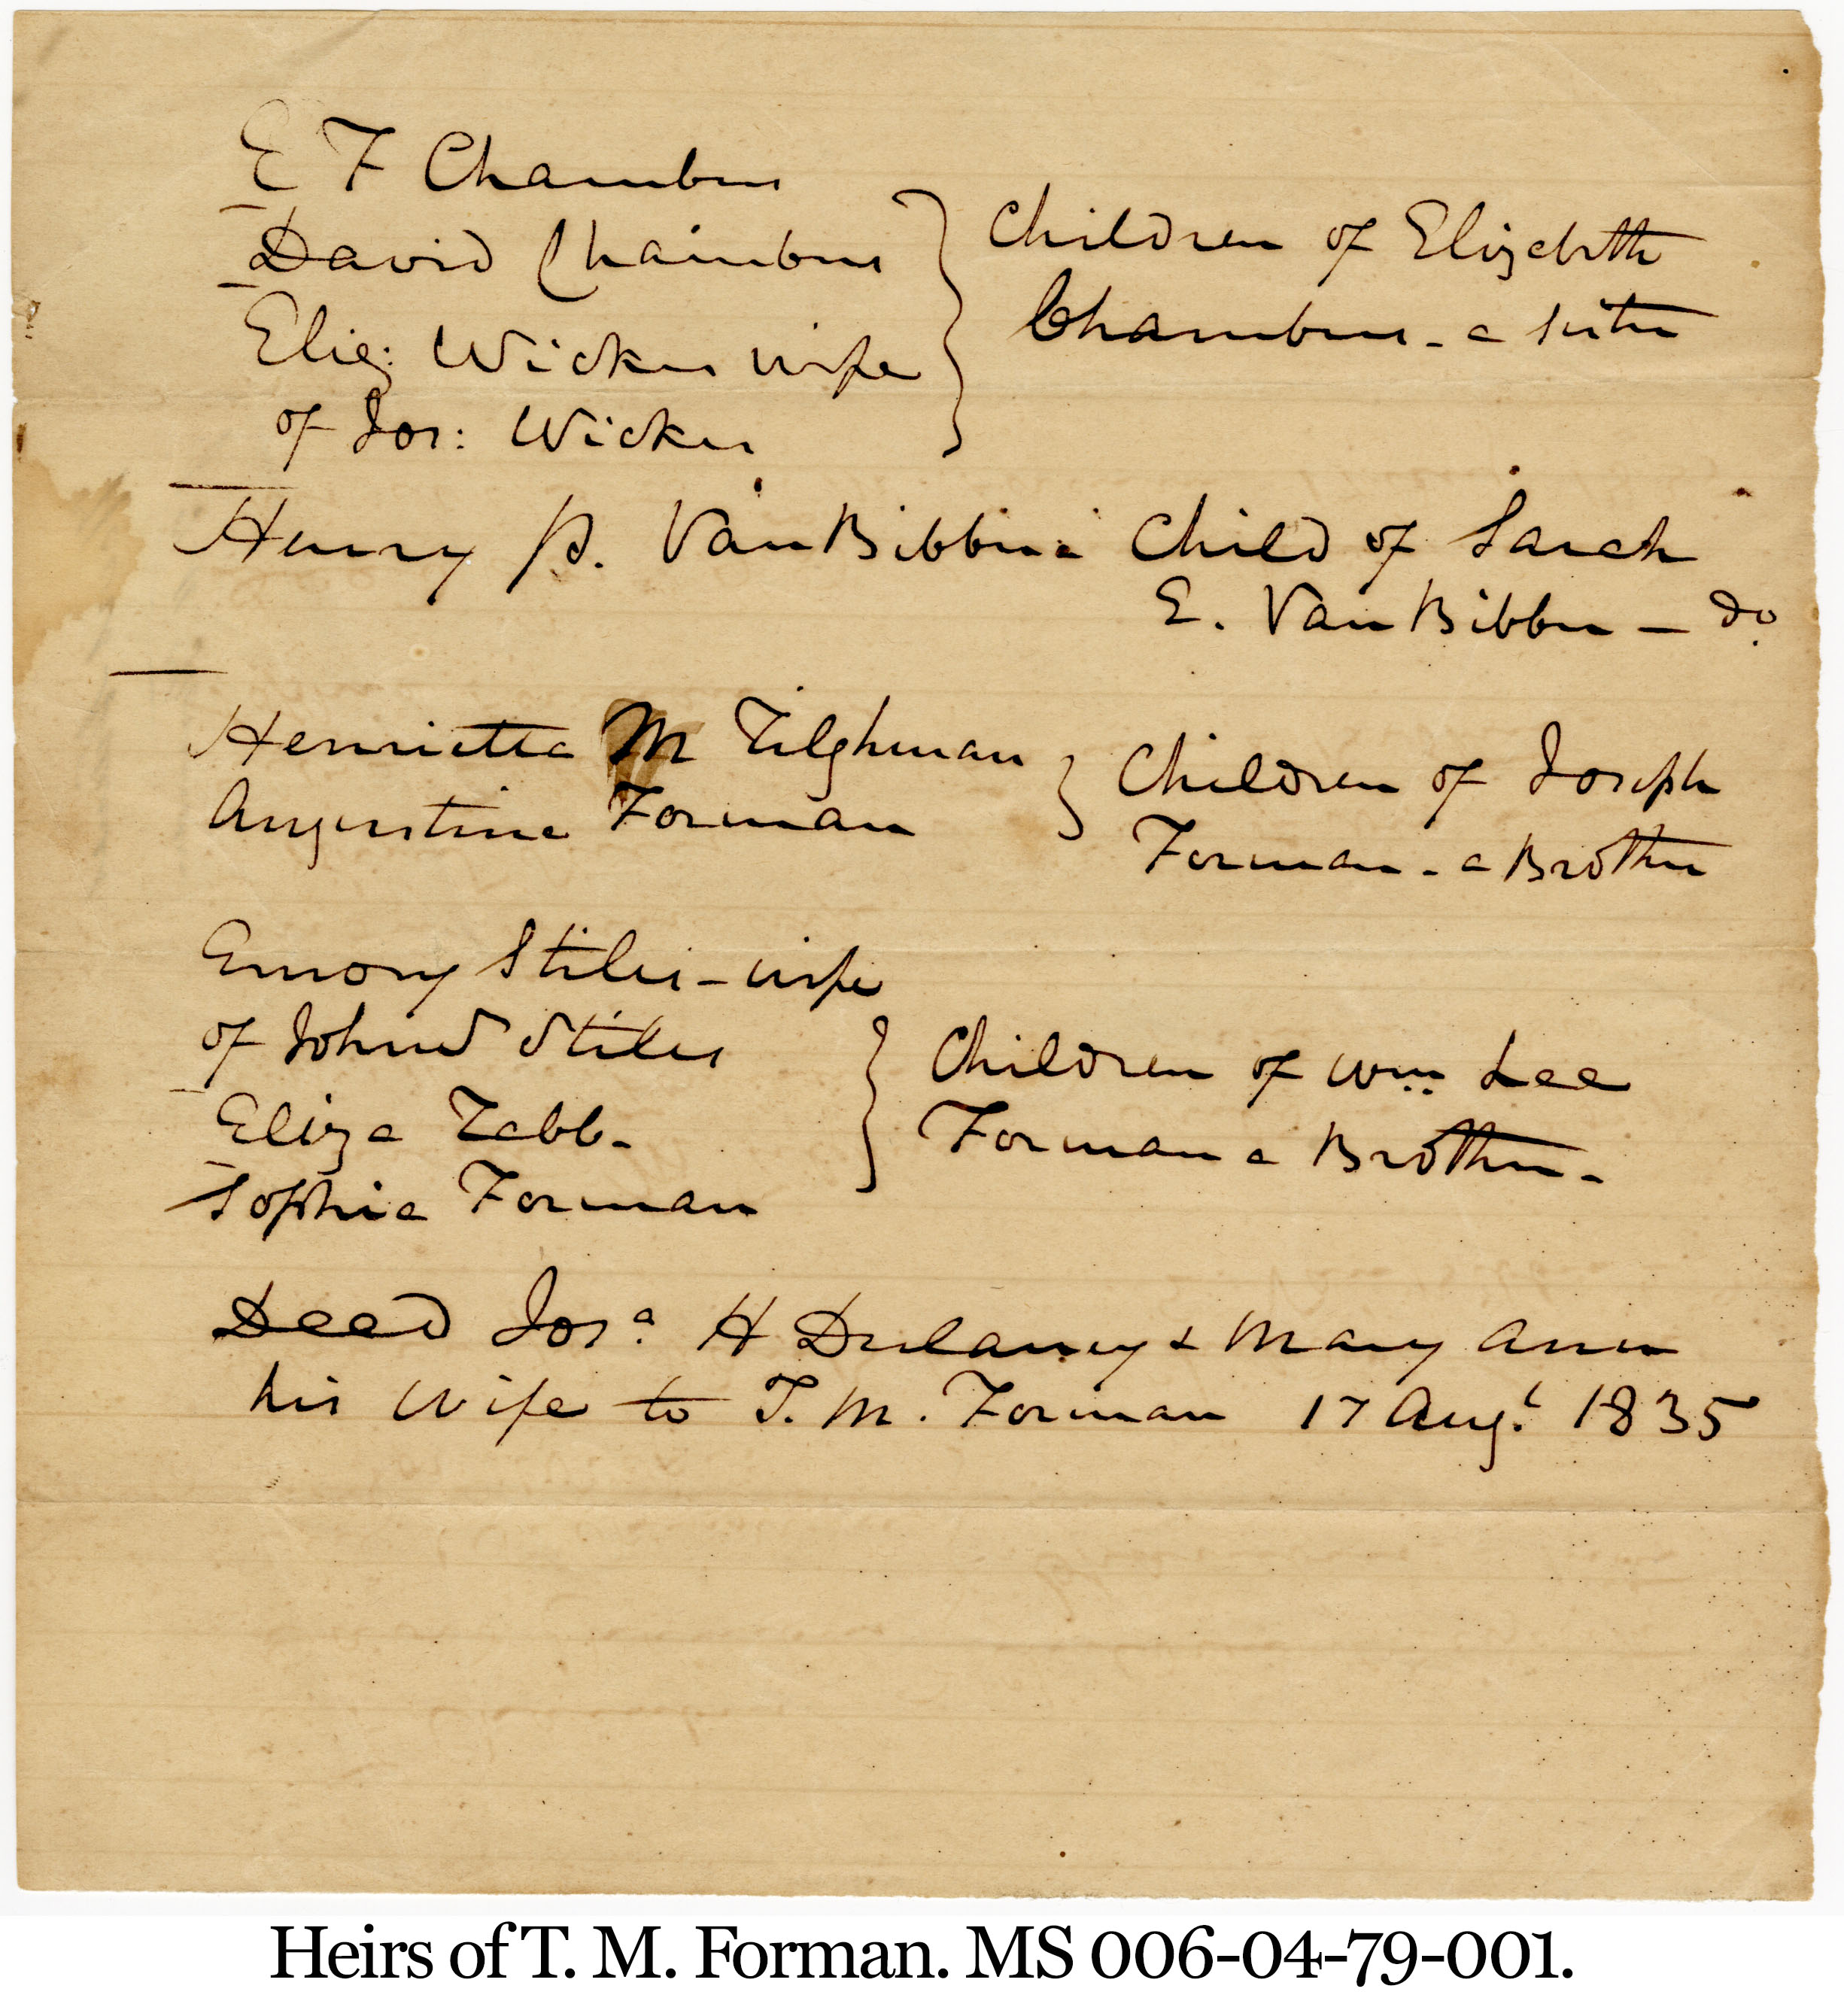 E F Chambers
David Chambers
Children of Elizabeth
Eliz: Wickes wife
Chambers - a sister
of Jos: Wickes
Henry P. Van Bibber a Child of Sarah
E. Van Bibber - do.
Henrietta M Tilghman
Children of Joseph
Augustine Forman
Forman - a Brother
Emory Stiles - wife
of John Stiles
Children of Wm Lee
Eliza Tabb -
Forman a Brother -
Sophia Forman
Deed Josa. H Dulaney & Mary Ann
his Wife to T. M. Forman 17 Augt 1835
Heirs of T. M. Forman. MS 006-04-79-001.